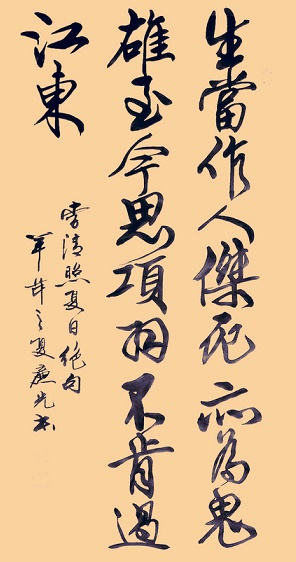 生當作人傑死亦為鬼
雄至今思項羽不肯過
江東
李清照夏日絕句
之夏